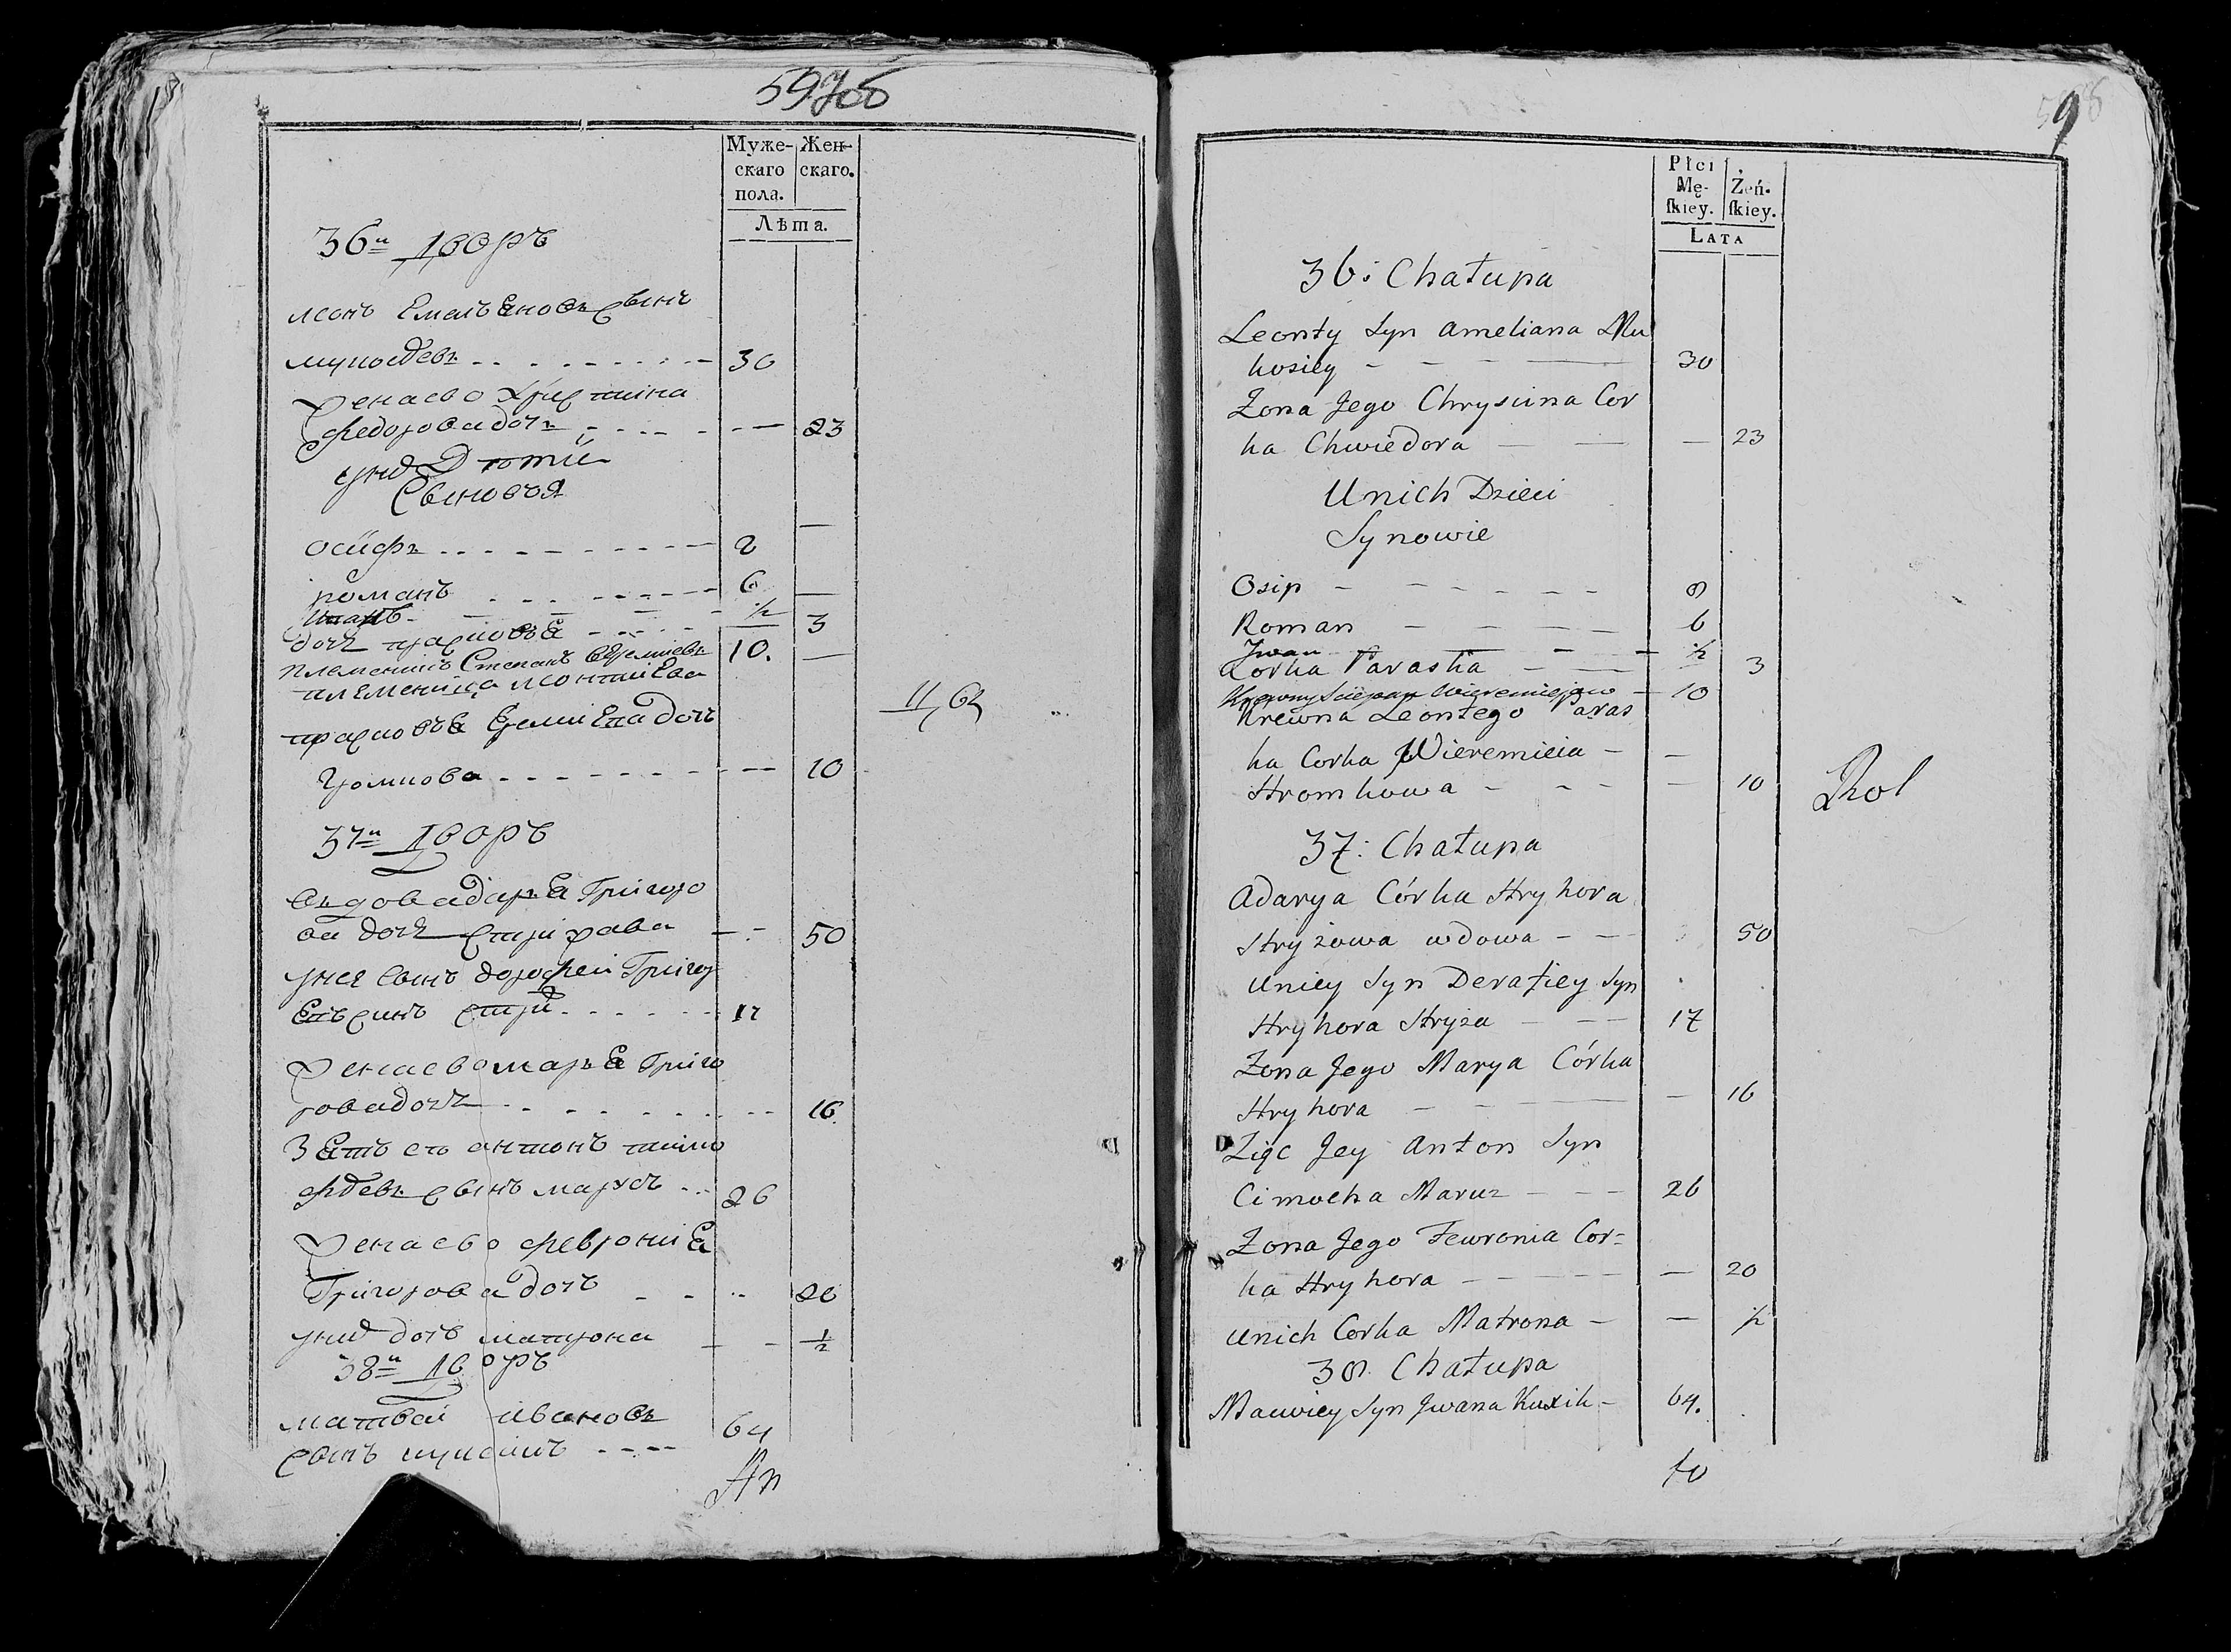 597об
Муже-
скаго
пола.
Жен-
скаго.
Лѣта.
36й Дворъ
леонъ Емельеновъ сынъ
мукосѣевъ 30
Жена ево Христина
Федорова дочь 23
у них Дети
Сыновья
Осифъ 2
романъ 6
Иванъ 1/2
дочь прасковья 3
племеникъ Степанъ 10.
племеница леонтиева
прасковья дочь
громкова 10
11/62
37й Дворъ
вдова дарья Григоро
ва дочь стрижава 50
у нея сынъ дорофей Григор
17
Жена ево марья Григо
рова дочь 16
Зеть ее антонъ тимо
феевъ сынъ марусъ 26
Жена ево феврония
Григорова дочь 20
у них дочь матрона 1/2
38й Дворъ
матвей ивановъ 64
сынъ
Płci
Mę-
ſkiey.
Żeń-
ſkiey.
LATA
36: Chałupa
Leonty Syn Ameliana Mu
kosiey 30
Zona Jego Chrystina Cor
ka Chwiedora 23
Unich Dzieci
Synowie
Osip 8
Roman 6
Jwan 1/2
Corka Paraska 3
Krewny Sciepan Wieremiejow 10
Krewna Leontego Paras
ka Corka Wieremieia
Hromkowa 10
37: Chałupa
Adarya Córka Hryhora
Stryżowa wdowa 50
Uniey Syn Derafiey Syn
Hryhora Stryża 17
Zona Jego Marya Córka
Hryhora 16
Zięc Jey Anton Syn
Cimocha Maruz 26
Zona Jego Fewronia Cor=
ka Hryhora 20
Unich Corka Matrona 1/2
38. Chałupa
Maciwiey Syn Jwana Kuzik 64.